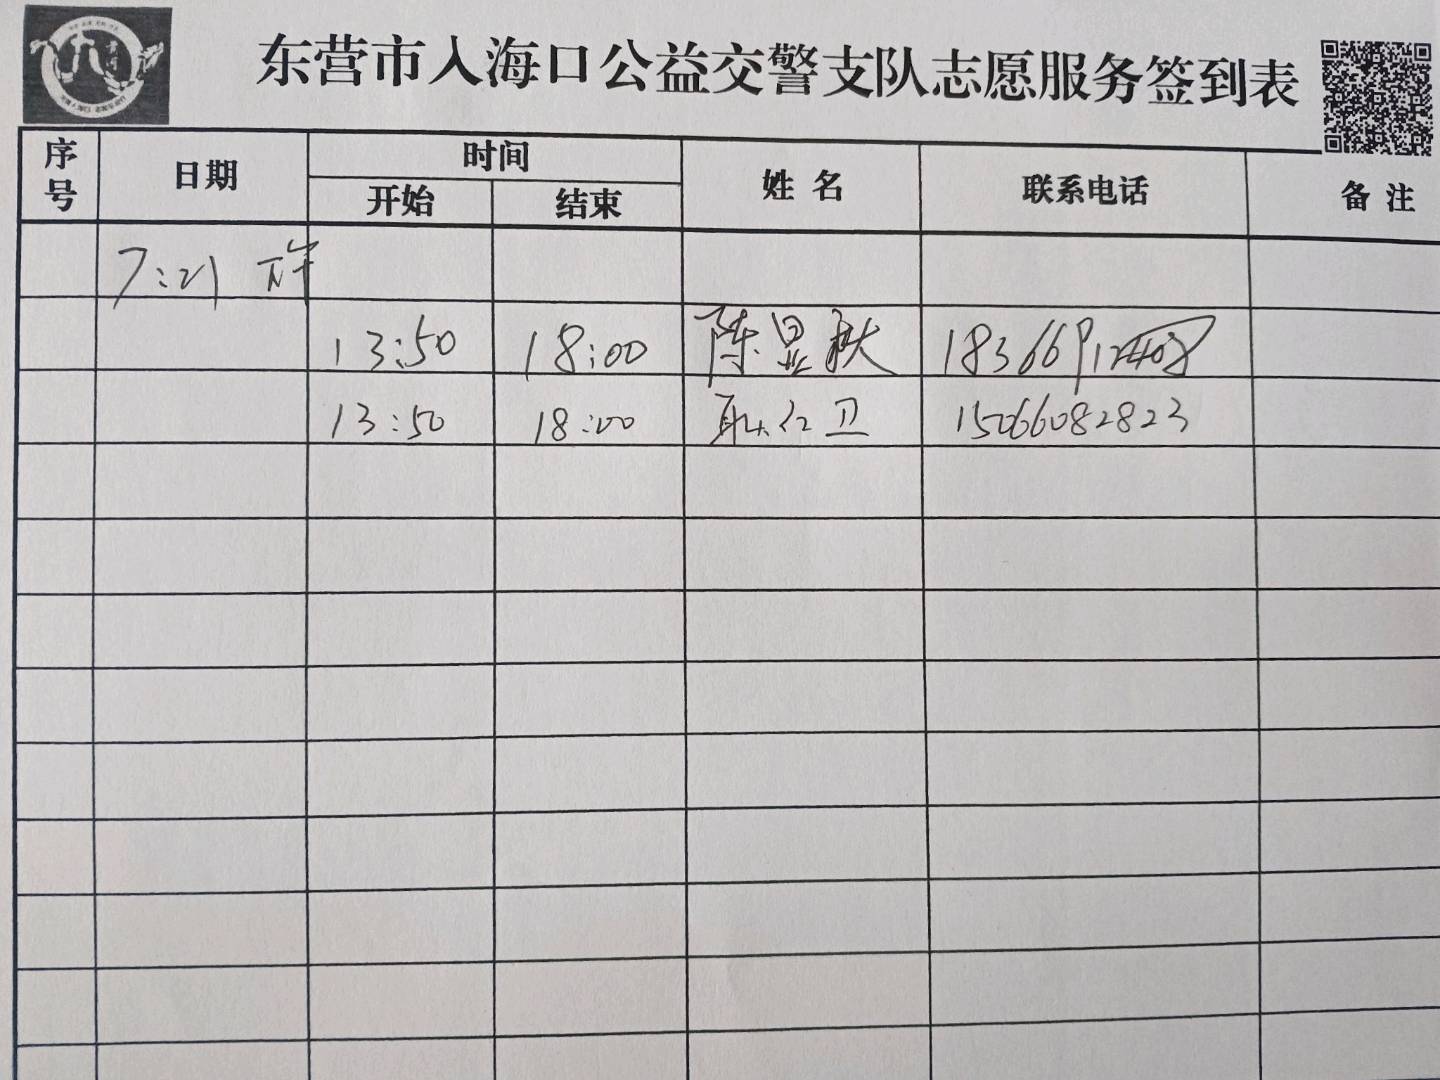 东营市入海口公益交警支队志愿服务签到表
序号 日期 时间 姓 名 联系电话 备 注
开始 结束
7:21 下午
13:50 18:00 陈显秋
13:50 18:00 耿红卫 15066082823